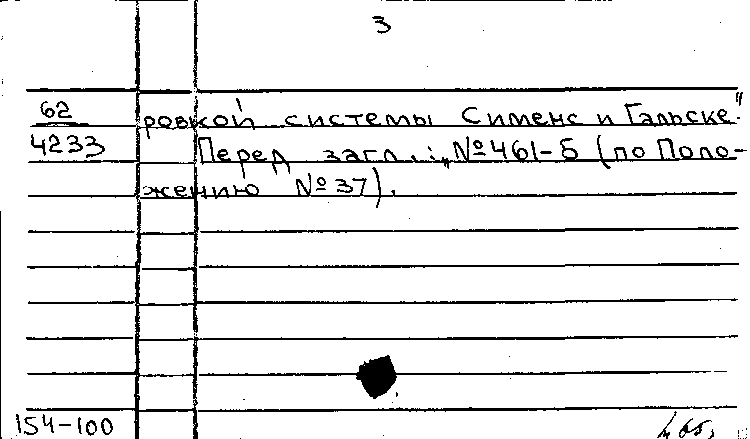 3
62
4233
ровкой системы Сименс и Гальске".
Перед загл.: "№461-Б (по Поло-
жению №37).
154-100